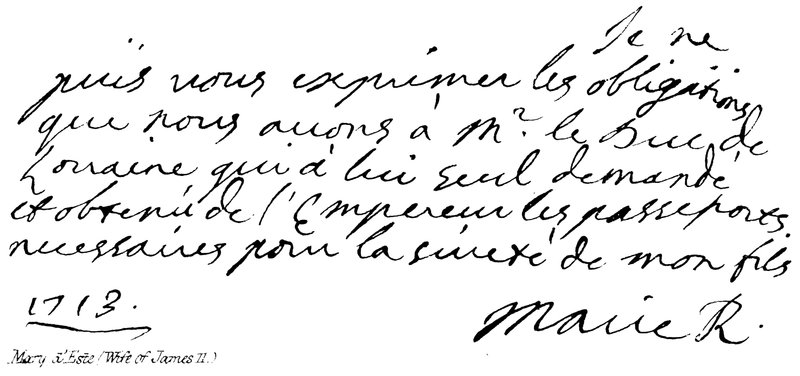 Je ne
puis vous exprimer les obligations
que nous auons à Mr. le Duc de
Lorraine qui à lui seul demandé
et obtenu de l'Empereur les passeports
necessaires pour la sûreté de mon fils
1713.
Marie R.
Mary d'Este (Wife of James II.)